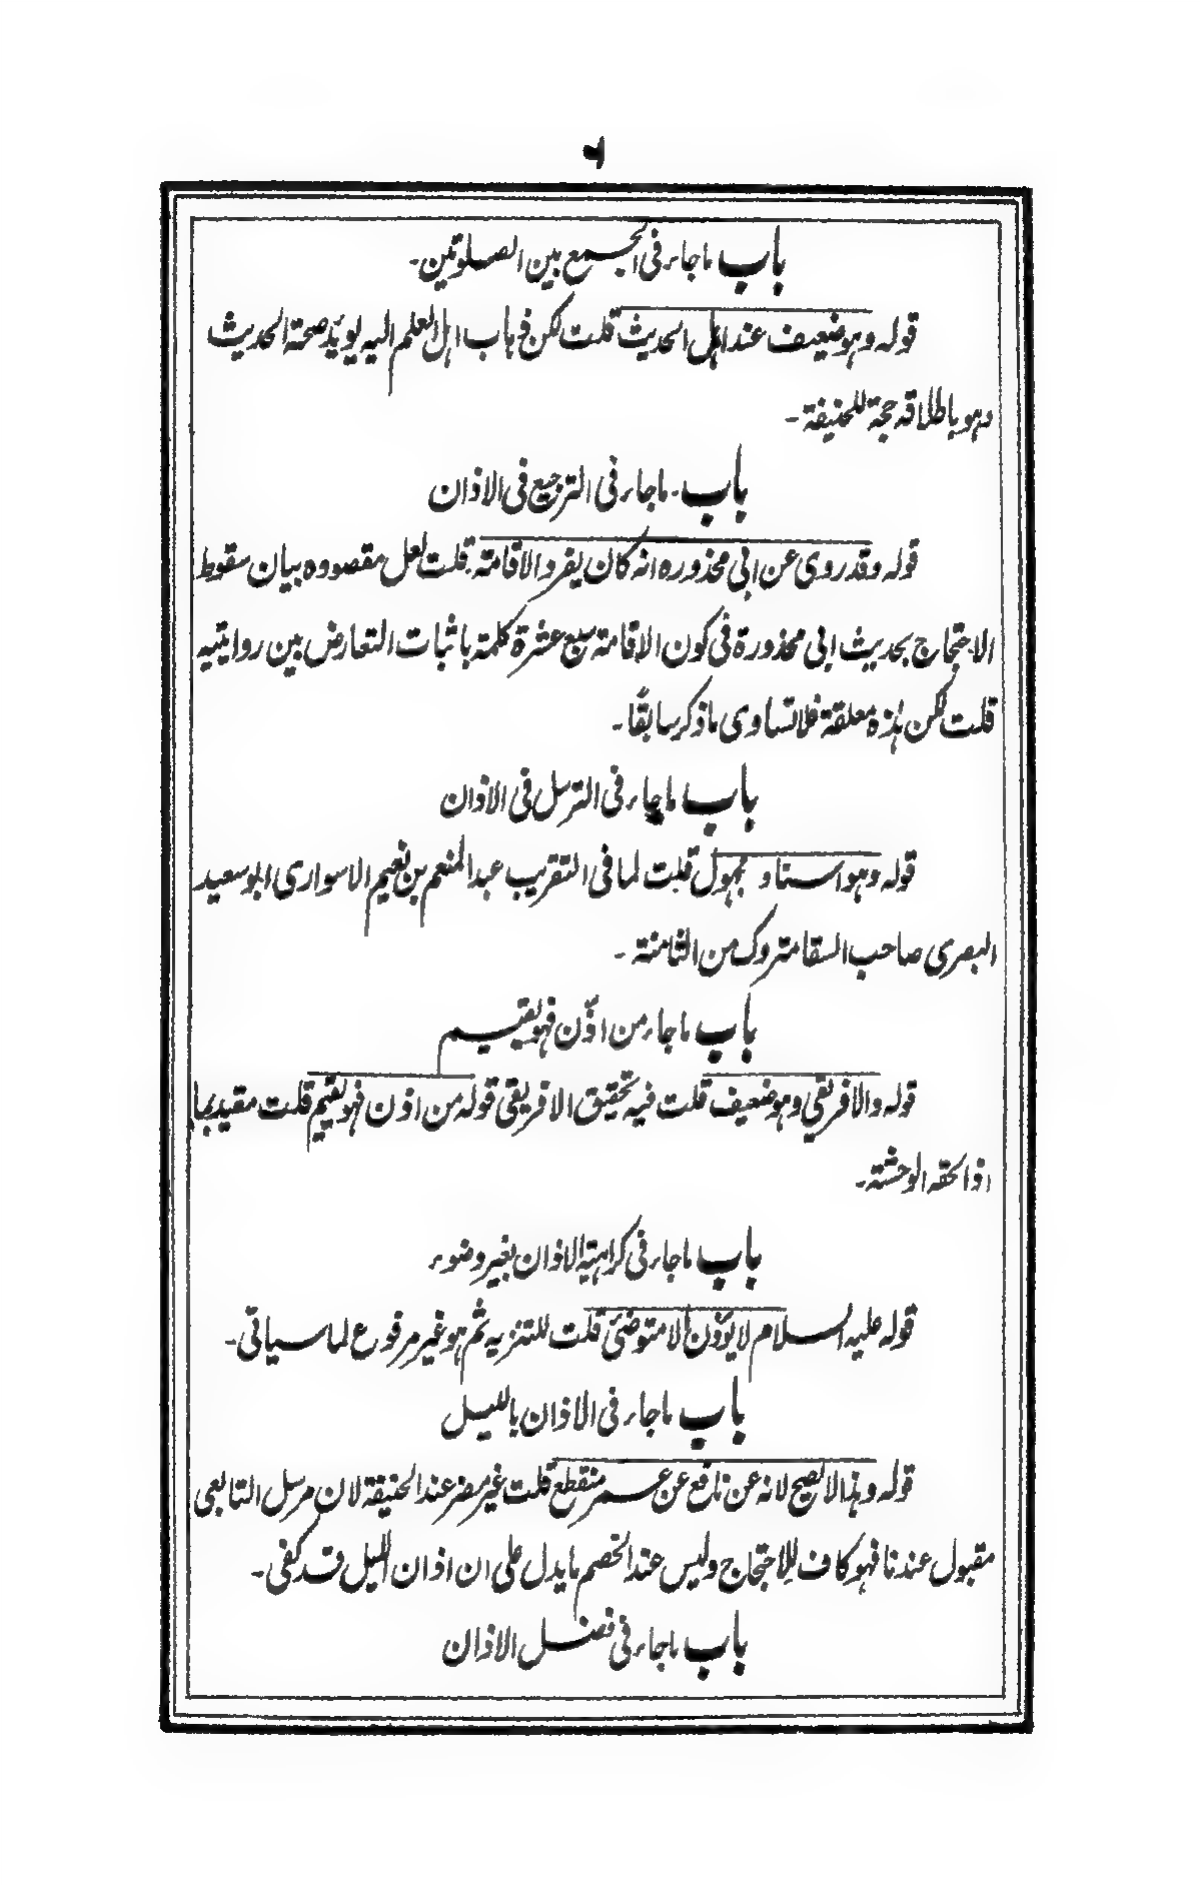 ۶
باب ماجاء فی الجمع بین الصلوتین۔
قوله وهو ضعیف عند اهل الحدیث قلت لکن ذهاب اهل العلم الیه یویّد صحة الحدیث
وهو باطلاقه حجة للحنیفة۔
باب۔ ماجاء فی الترجیع فی الاذان
قوله وقد روی عن ابی محذوره انه کان یفرد الاقامة قلت لعل مقصوده بیان سقوط
الاحتجاج بحدیث ابی محذورة فی کون الاقامة سبع عشرة کلمة باثبات التعارض بین روایتیه
قلت لکن هذه معلقة فلا تساوی ما ذکر سابقًا۔
باب ماجاء فی الترسل فی الاذان
قوله وهو اسناد مجهول قلت لما فی التقریب عبد المنعم بن نعیم الاسواری ابو سعید
البصری صاحب السقا متروک من الثامنة۔
باب ماجاء من اذّن فهو یقیم
قوله والافریقی وهو ضعیف قلت فیه تحقیق الافریقی قوله من اذن فهو یقیم قلت مقید بما
اذا لحقه الوحشة۔
باب ماجاء فی کراهیة الاذان بغیر وضوء
قوله علیه السلام لا یوذّن الا متوضئ قلت للتنزیه ثم هو غیر مرفوع لما سیاتی۔
باب ماجاء فی الاذان باللیل
قوله وهذا لا یصح لانه عن نافع عن عمر منقطع قلت غیر مضر عند الحنیفة لان مرسل التابعی
مقبول عندنا فهو کاف للاحتجاج ولیس عند الخصم ما یدل علی ان اذان اللیل قد کفی۔
باب ماجاء فی فضل الاذان